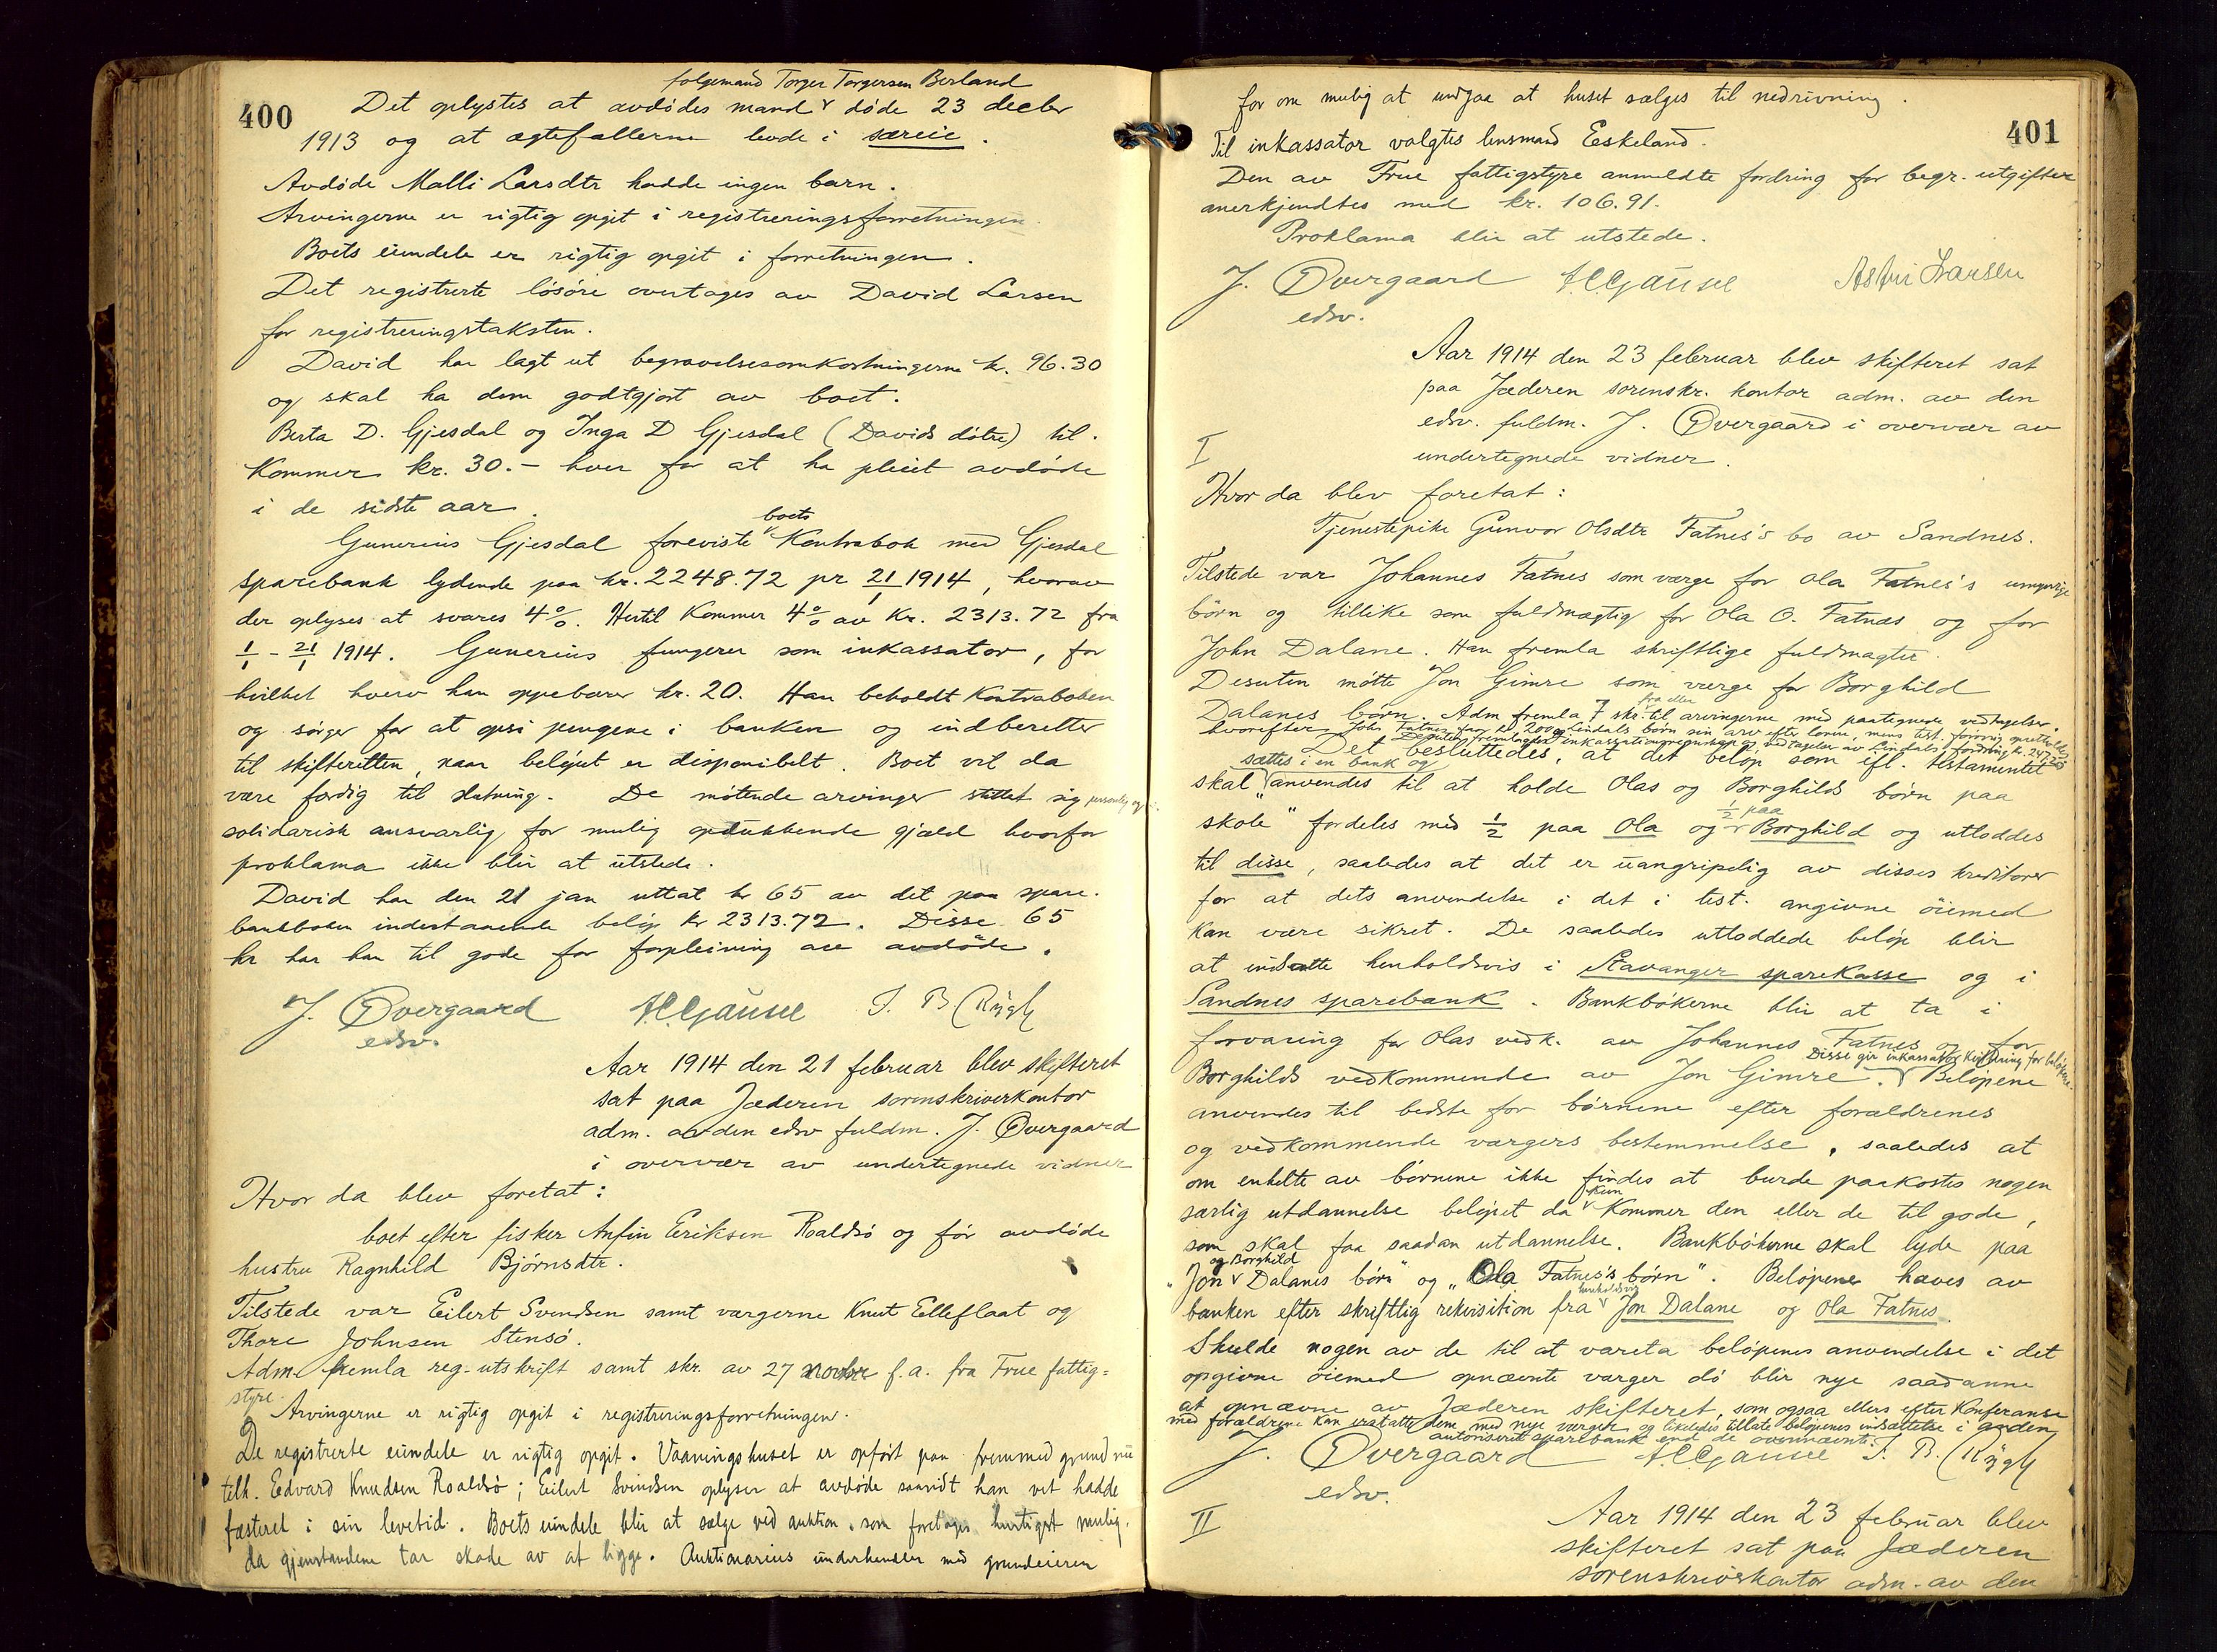 400
følgemand Torger Torgersen Berland
Det oplystes at avdödes mand döde 23 decbr
1913 og at ægtefællerne levde i særeie.
Avdöde Malli Larsdtr hadde ingen barn.
Arvingerne er rigtig opgit i registreringsforretningen.
Boets eiendele er rigtig opgit i forretningen.
Det registrerte lösöre overtages av David Larsen
for registreringstaksten.
David har lagt ut begravelsesomkostningerne kr. 96.30
og skal ha dem godtgjort av boet.
Berta D. Gjesdal og Inga D Gjesdal (Davids dötre) til-
kommer kr. 30.- hver for at ha pleiet avdöde
i de sidste aar.
boets
Gunerius Gjesdal foreviste Kontrabok med Gjesdal
sparebank lydende paa kr. 2248.72 pr 21/1 1914, hvorav
der oplyses at svares 4%. Hertil kommer 4% av kr. 2313.72 fra
1/1 - 21/1 1914. Gunerius fungerer som inkassator, for
hvilket hverv han oppebærer kr. 20. Han beholdt Kontraboken
og sörger for at opsi pengene i banken og indberetter
til skifteretten, naar belöpet er disponibelt. Boet vil da
være færdig til slutning. De mötende arvinger stillet sig personlig og
solidarisk ansvarlig for mulig opdukkende gjæld hvorfor
proklama ikke blir at utstede.
David har den 21 jan uttat kr 65 av det paa spare-
bankboken indestaaende belöp kr 2313.72. Disse 65
kr har han til gode for forpleining av avdöde.
J. Övergaard HCGausel T. B. Rygh
edsv.
Aar 1914 den 21 februar blev skifteret
sat paa Jæderen sorenskriverkontor
adm. av den edsv fuldm. J. Övergaard
i overvær av undertegnede vidner
Hvor da blev foretat:
boet efter fisker Anfin Eriksen Roaldsö og för avdöde
hustru Ragnhild Bjørnsdtr.
Tilstede var Eilert Svendsen samt værgerne Knut Elleflaat og
Thore Johnsen Stensö.
Adm. fremla reg-utskrift samt skr. av 27 novbr f.a. fra Frue fattig-
styre.
Arvingerne er rigtig opgit i registreringsforretningen.
De registrerte eiendele er rigtig opgit. Vaaningshuset er opfört paa fremmed grund nu
tilh. Edvard Knudsen Roaldsö; Eilert Svendsen oplyser at avdöde saavidt han vet hadde
fæsteret i sin levetid. Boets eiendele blir at sælge ved auktion, som foretages hurtigst mulig,
da gjenstandene tar skade av at ligge. Auktionarius underhandler med grundeieren
401
for om mulig at undgaa at huset sælges til nedrivning.
Til inkassator valgtes lensmand Eeskeland.
Den av Frue fattigstyre anmeldte fordring for begr. utgifter
anerkjendtes med kr. 106.91.
Proklama blir at utstede.
J. Övergaard HCGausel Astri Larsen
edsv.
Aar 1914 den 23 februar blev skifteret sat
paa Jæderen sorenskr. kontor adm. av den
edsv. fuldm. J. Övergaard i overvær av
I undertegnede vidner.
Hvor da blev foretat:
Tjenestepike Gunvor Olsdtr Fatnes's bo av Sandnes.
Tilstede var Johannes Fatnes som værge for Ola Fatnes's umyndige
börn og tillike som fuldmægtig for Ola O. Fatnæs og for
John Dalane. Han fremla skriftlige fuldmagter.
Desuten mötte Jon Gimre som værge for Borghild
og fra eller
Dalanes börn. Adm fremla 7 skr. til arvingerne med paategnede vedtagelser,
hvorefter Joh. Fatnes faar kr. 200 og Lindals börn sin arv efter loven, mens test. forövrig opretholdes.
Desuten fremlagdes inkassationsregnskap og vedtagelse av Lindals fordring kr. 247.20
Det besluttedes, at det belöp som ifl. testamentet
sættes i en bank og
skal "anvendes til at holde Olas og Borghilds börn paa
1/2 paa
skole" fordeles med 1/2 paa Ola og Borghild og utloddes
til disse, saaledes at det er uangripelig av disses kreditorer
for at dets anvendelse i det i test. angivne öiemed
kan være sikret. De saaledes utloddede belöp blir
at indsætte henholdsvis i Stavanger sparekasse og i
Sandnes sparebank. Bankbökerne blir at ta i
forvaring for Olas vedk. av Johannes Fatnes og for
Disse gir inkassator kvittering for belöpene.
Borghilds vedkommende av Jon Gimre. Belöpene
anvendes til bedste for börnene efter forældrenes
og vedkommende værgers bestemmelse, saaledes at
om enkelte av börnene ikke findes at burde paakostes nogen
kun
særlig utdannelse belöpet da kommer den eller de til gode,
som skal faa saadan utdannelse. Bankbökerne skal lyde paa
og Borghild
"Jon Dalanes börn" og "Ola Fatnes's börn". Belöpene hæves av
henholdsvis
banken efter skriftlig rekvisition fra Jon Dalane og Ola Fatnes.
Skulde nogen av de til at vareta belöpenes anvendelse i det
opgivne öiemed opnævnte værger dö blir nye saadanne
at opnævne av Jæderen skifteret, som ogsaa ellers efter Konferanse
med forældrene kan erstatte dem med nye værger og likeledes tillate belöpenes indsættelse i anden
autoriseret sparebank end de ovennævnte.
J. Övergaard HCGausel T. B. Rygh
edsv.
II Aar 1914 den 23 februar blev
skifteret sat paa Jæderen
sorenskriverkontor adm. av den